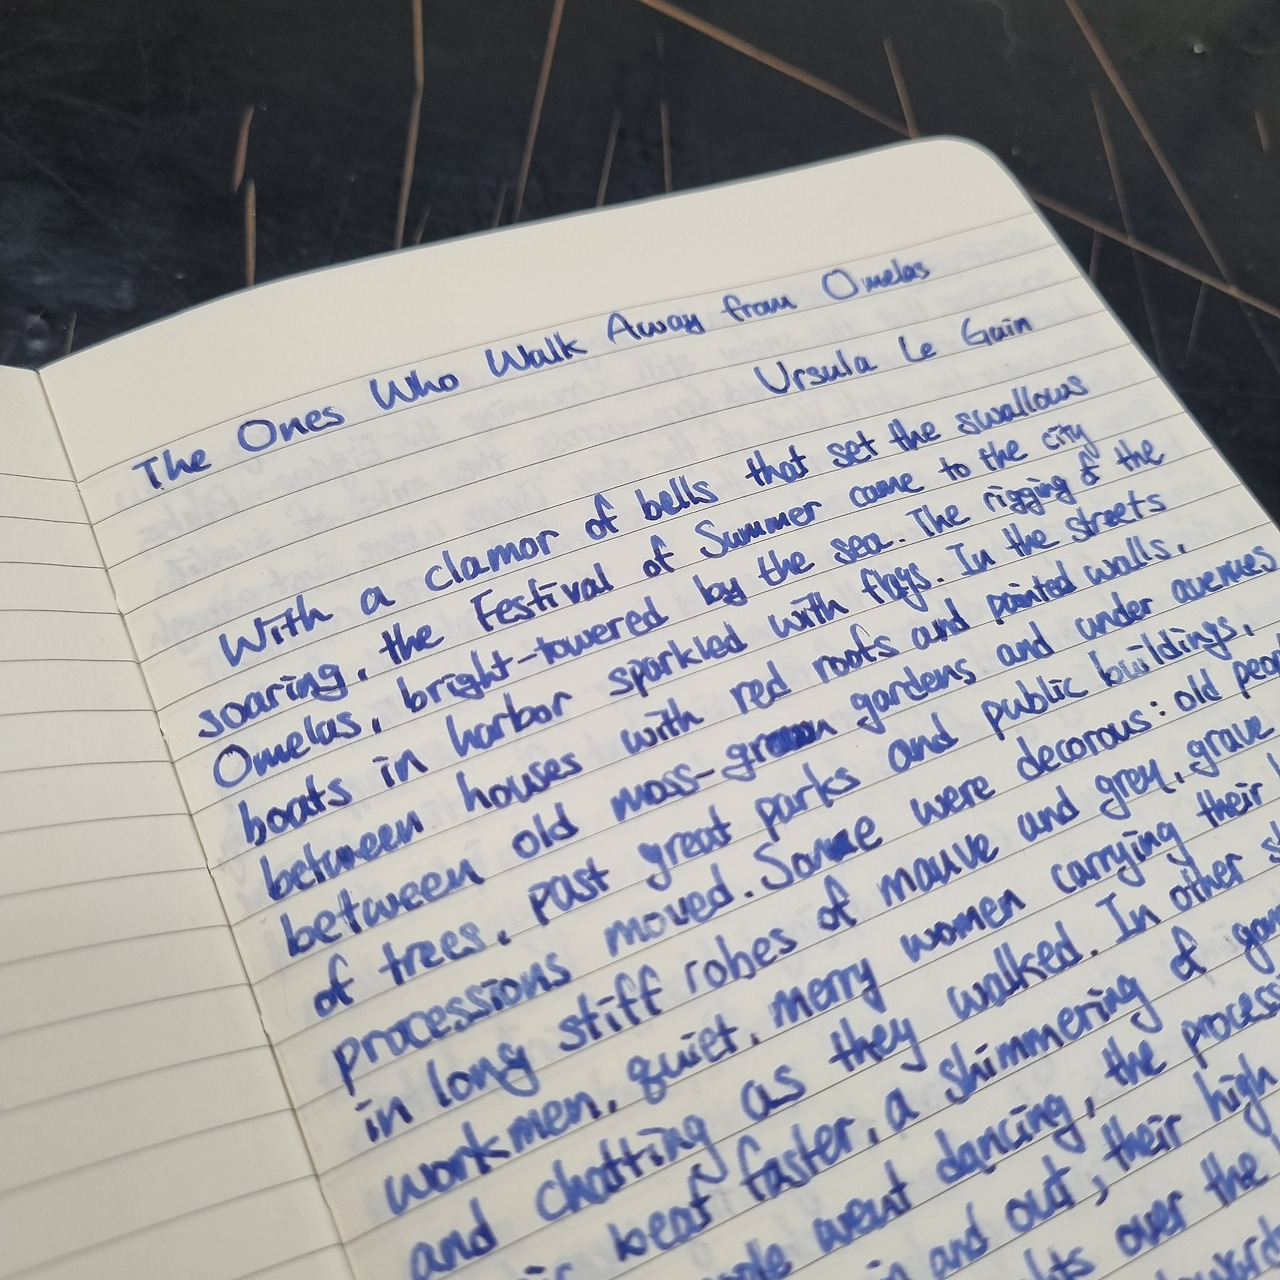 The Ones Who Walk Away from Omelas
Ursula Le Guin
With a clamor of bells that set the swallows
soaring, the Festival of Summer came to the city
Omelas, bright-towered by the sea. The rigging of the
boats in harbor sparkled with flags. In the streets
between houses with red roofs and painted walls,
between old moss-grown gardens and under avenues
of trees, past great parks and public buildings,
processions moved. Some were decorous: old
in long stiff robes of mauve and grey, grave
workmen, quiet, merry women carrying their
and chatting as they walked. In other
beat faster, a shimmering of
went dancing, the
in and out, their high
over the